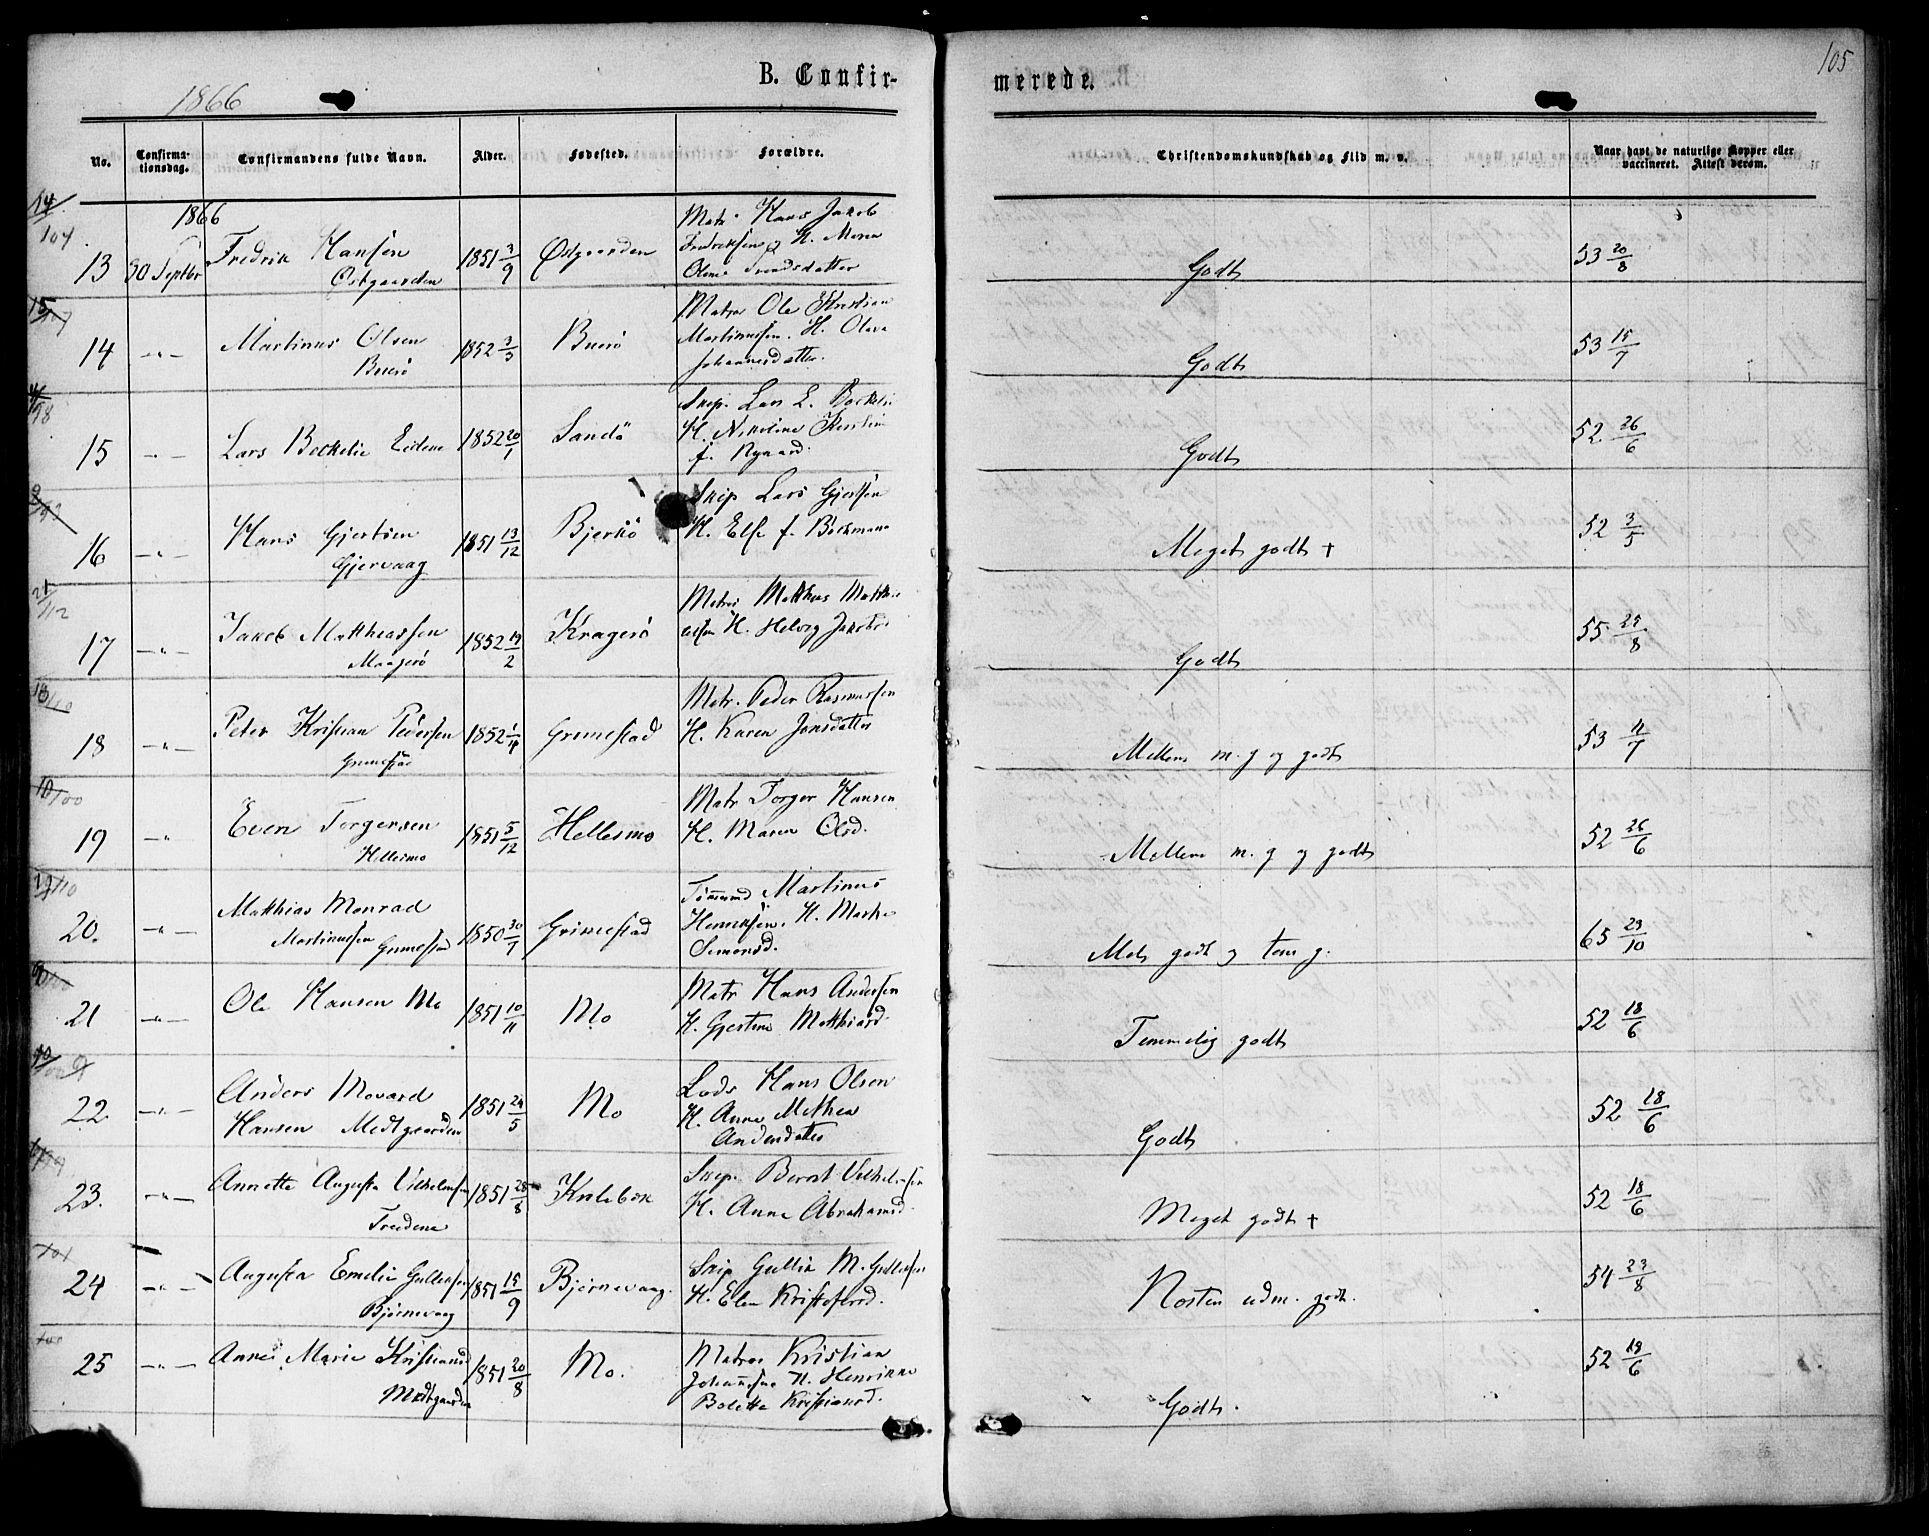 105
B. Confir-
merede.
1866
No.
Confirma-
tionsdag.
Confirmandens fulde Navn.
Alder.
Fødested.
Forældre.
Christendomskundskab og Flid m. v.
Naar havt de naturlige Kopper eller
vaccineret. Attest derom.
1866
13 30 Septbr Fredrik Hansen
Østgaarden
1851 3/9 Østgaarden
Matr. Hans Jakob
Fredriksen og H. Maren
Olene
Godt
53 20/8
14 -"- Martinus Olsen
Buerø
1852 3/5 Buerø
Matros Ole Kristian
Martinussen. H. Olava
Johannesdatter.
Godt
53 15/7
15 -"- Lars Beckelie Eidene 1852 20/1 Sandø
Skip. Lars L. Beckelie
H. Nikoline Kirstine
f. Nygaard.
Godt
52 26/6
16 -"- Hans Gjertsen
Gjervaag
1851 13/12 Bjerkø
Skip Lars Gjertsen
H. Else f. Bockmann
Meget godt +
52 3/5
17 -"- Jakob Matthiassen
Maagerø
1852 19/2 Kragerø
Matros Matthias Matthi-
assen H. Helvig Jakobsd.
Godt
55 25/8
18 -"- Peter Kristian Pedersen
Grimestad
1852 1/4 Grimestad
Matr. Peder Rasmussen
H. Karen Jensdatter
Mellem m. g og godt
53 11/7
19 -"- Even Torgersen
Hellesmo
1851 5/12 Hellesmo
Matr Torger Hansen
H. Maren Olsd.
Mellem m. g og godt
52 26/6
20. -"- Matthias Monrad
Martinussen Grimestad
1850 30/7 Grimestad
Tømmermd Martinus
Henriksen. H. Marthe
Simonsd.
Mel. godt og tem g.
65 29/10
21 -"- Ole Hansen Mo 1851 10/11 Mo
Matr Hans Andersen
H. Gjertine Matthiasd.
Temmelig godt
52 18/6
22. -"- Anders Movard
Hansen Medtgaarden
1851 24/5 Mo
Lods Hans Olsen
H. Anne Mathea
Andersdatter
Godt
52 18/6
23. -"- Annette Augusta Vilhelmsen
Tredene
1851 28/8
Skip. Bernt Vilhelmsen
H. Anne Abrahamsd.
Meget godt +
52 18/6
24 -"- Augusta Emelie Gulliksen
Bjørnevaag
1851 15/9 Bjørnevaag.
Skip Gullik M. Gulliksen
H. Elen Kristofersd.
Næsten udm. godt.
54 23/8
25 -"- Anne Marie Kristiansd
Medtgaarden
1851 20/8 Mo.
Matros Kristian
Johannesen H. Henrikke
Bolette Kristiansd.
Godt.
52 19/6